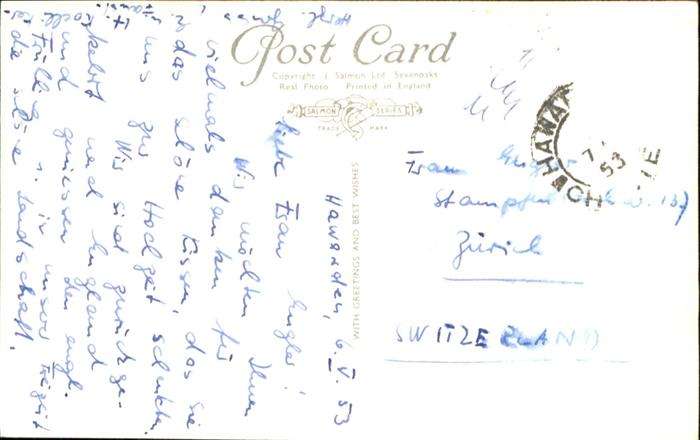 Post Card
Copyright J. Salmon Ltd. Sevenoaks
Real Photo Printed in England
SALMON SERIES
TRADE MARK
WITH GREETINGS AND BEST WISHES
Hawarden, 6. V. 53
Liebe Frau Engler!
Wir möchten Ihnen
vielmals danken für
das schöne Kissen, das Sie
uns zur Hochzeit schickten.
Wir sind zurückge-
kehrt nach England
und geniessen den engl.
Frühling in unserer
die schöne Landschaft.
Herzl.
HAWA
7
53
CH
Frau Engler
137
Zürich
SWITZERLAND